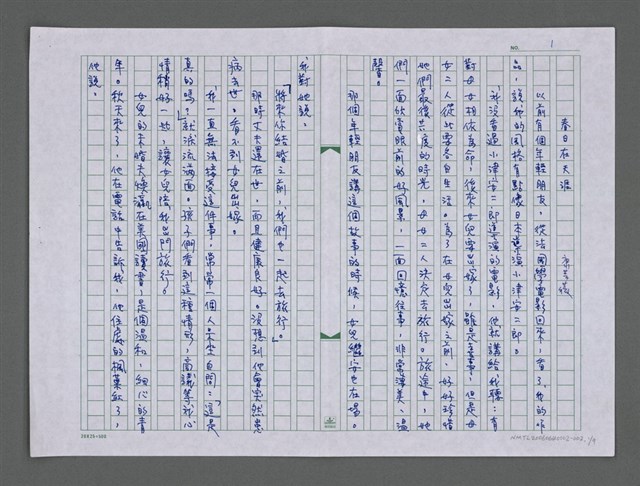 NO. 1
春日在天涯
以前有個年輕朋友，從法國學電影回來，看了我的作
品，說我的風格有點像日本導演小津安二郎。
我沒看過小津安二郎導演的電影，他就講給我聽：有
對母女相依為命，後來女兒要出嫁了，雖是喜事，但是母
女二人從此要各自生活。為了在女兒出嫁之前，好好珍惜
她們最後共度的時光，母女二人決定去旅行。旅途中，她
們一面欣賞眼前的好風景，一面回憶往事，非常淒美、溫
馨。
那個年輕朋友講這個故事的時候，女兒繼安也在場。
我對她說：
「將來你結婚之前，我們也一起去旅行。」
那時丈夫還在世，而且健康良好。沒想到他會突然患
病去世，看不到女兒出嫁。
我一直無法接受這件事，常常一個人呆坐自問：「這是
真的嗎？」就淚流滿面。孩子們看到這種情形，商議等我心
情稍好一些，讓女兒陪我出門旅行。
女兒的未婚夫煥瀛在英國讀書，是個溫和、細心的青
年。秋天來了，他在電話中告訴我，他住處的楓葉紅了，
他說：